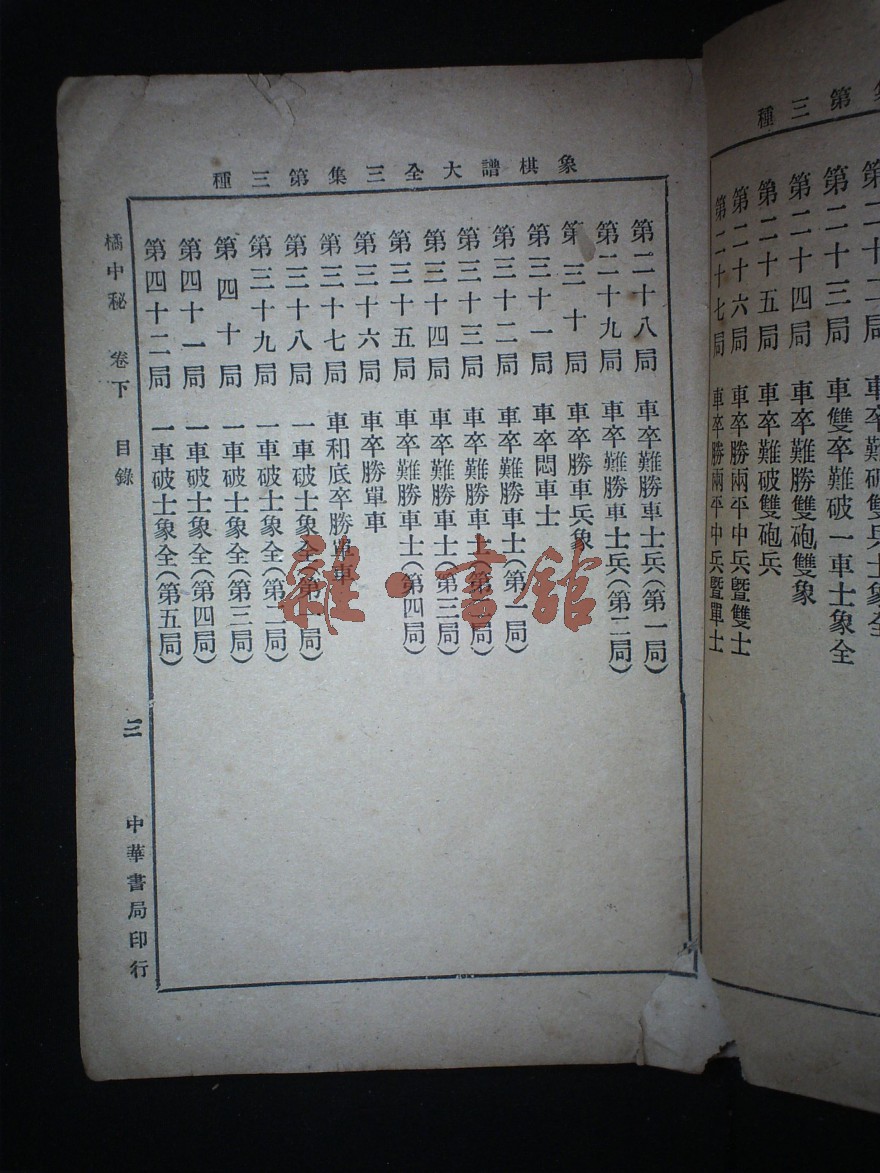 第三種
第二十三局 車雙卒難破一車士象全
第二十四局 車卒難勝雙砲雙象
第二十五局 車卒難破雙砲兵
第二十六局 車卒勝兩平中兵暨雙士
第二十七局 車卒勝兩平中兵暨單士
象棋譜大全三集第三種
第二十八局 車卒難勝車士兵(第一局)
第二十九局 車卒難勝車士兵(第二局)
第三十局 車卒勝車兵象
第三十一局 車卒悶車士
第三十二局 車卒難勝車士(第一局)
第三十三局 車卒難勝車士(第二局)
第三十四局 車卒難勝車士(第三局)
第三十五局 車卒難勝車士(第四局)
第三十六局 車卒勝單車
第三十七局 車和底卒勝單車
第三十八局 一車破士象全(第一局)
第三十九局 一車破士象全(第二局)
第四十局 一車破士象全(第三局)
第四十一局 一車破士象全(第四局)
第四十二局 一車破士象全(第五局)
橘中秘 卷下 目錄 三 中華書局印行
雜·書館